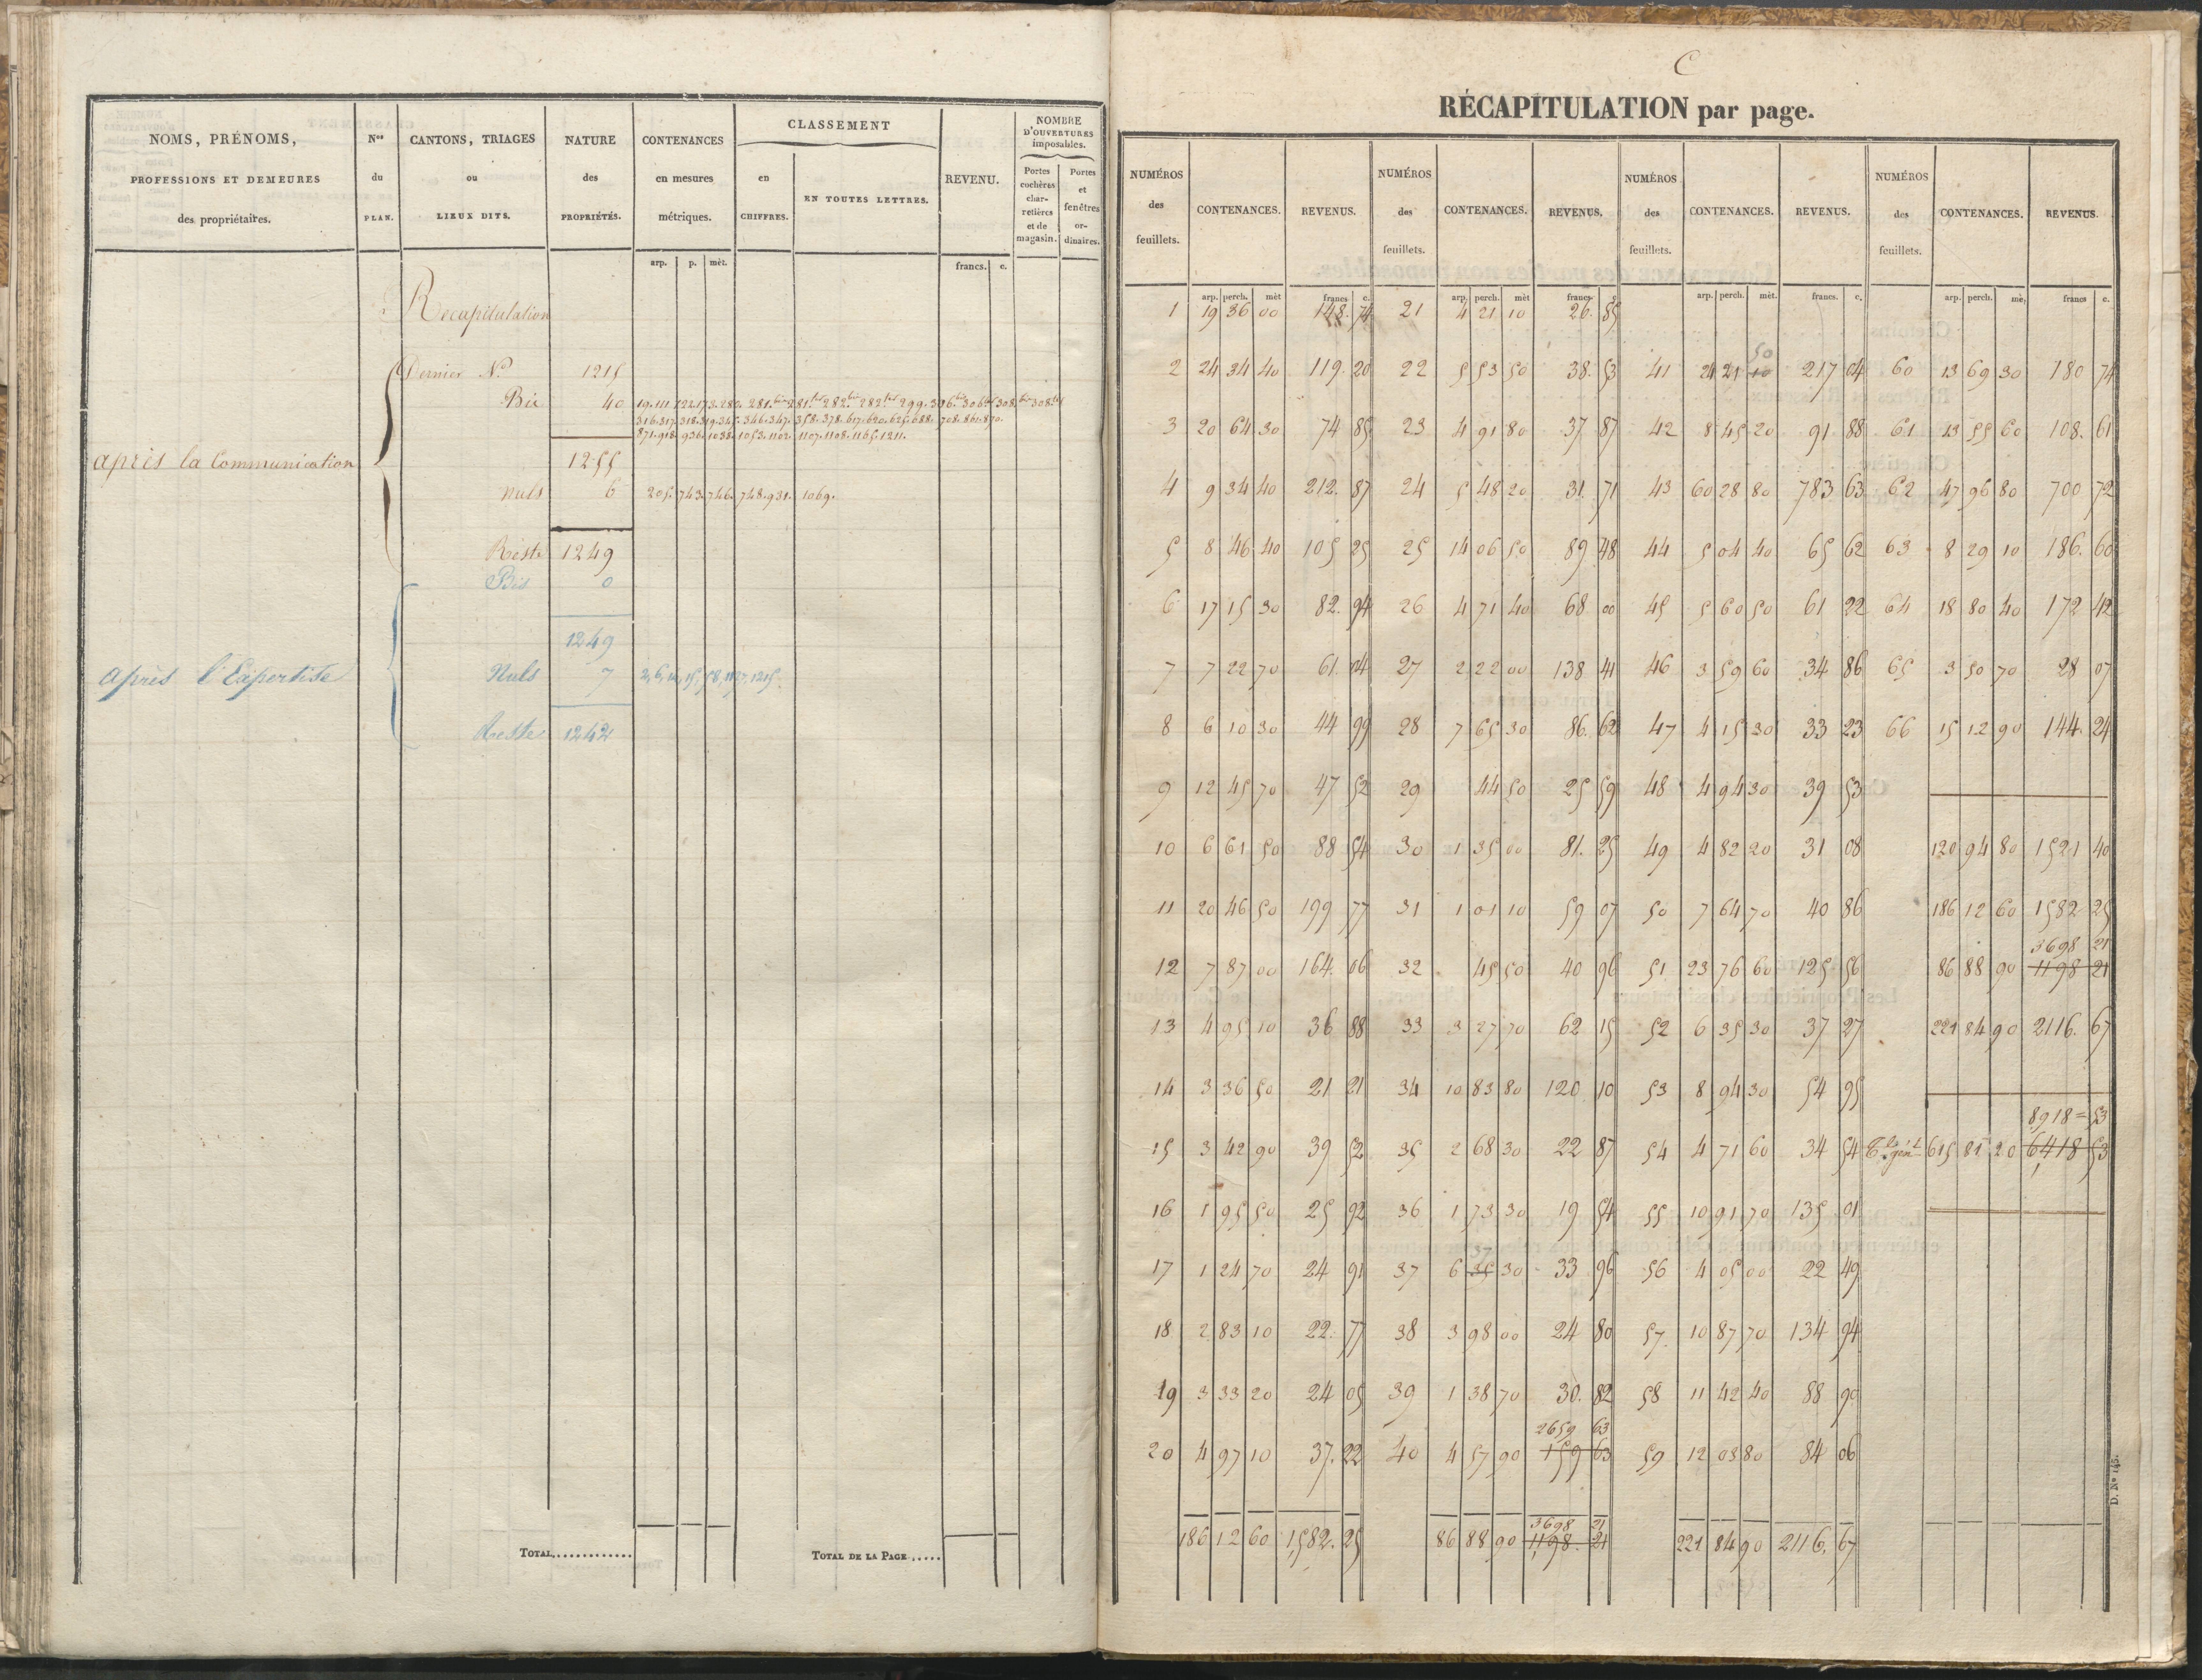 NOMS, PRÉNOMS, PROFESSIONS ET DEMEURES des propriétaires.
Nos du PLAN.
CANTONS, TRIAGES ou LIEUX DITS.
NATURE des PROPRIÉTÉS.
CONTENANCES en mesures métriques.
CLASSEMENT
en CHIFFRES.
EN TOUTES LETTRES.
REVENU.
NOMBRE D'OUVERTURES imposables.
Portes cochères charretières et de magasin.
Portes et fenêtres ordinaires.
arp. p. mèt. francs. c.
Recapitulation
Dernier No. 1215
Bis 40
1255
après la Communication
nuls 6 205. 743. 746. 748. 931. 1069.
Reste 1249
Bis 0
1249
après l'Expertise Nuls 7
Reste 1242
TOTAL............ TOTAL DE LA PAGE.....
C
RÉCAPITULATION par page.
NUMÉROS des feuillets. CONTENANCES. REVENUS. NUMÉROS des feuillets. CONTENANCES. REVENUS. NUMÉROS des feuillets. CONTENANCES. REVENUS. NUMÉROS des feuillets. CONTENANCES. REVENUS.
arp. perch. mèt francs c. arp. perch. mèt francs c. arp. perch. mèt. francs. c. arp. perch. mè. francs c.
1 19 36 00 148. 74 21 4 21 10 26. 85
50
2 24 34 40 119. 20 22 5 53 50 38. 53 41 24 21 10 217 04 60 13 69 30 180 74
3 20 64 30 74 85 23 4 91 80 37 87 42 8 45 20 91. 88 61 13 55 60 108. 61
4 9 34 40 212. 87 24 5 48 20 31. 71 43 60 28 80 783 63 62 47 96 80 700 72
5 8 46 40 105 25 25 14 06 50 89 48 44 5 04 40 65 62 63 8 29 10 186. 60
6 17 15 30 82. 94 26 4 71 40 68 00 45 5 60 50 61 22 64 18 80 40 172 42
7 7 22 70 61. 04 27 2 22 00 138 41 46 3 59 60 34 86 65 3 50 70 28 07
8 6 10 30 44 99 28 7 65 30 86. 62 47 4 15 30 33 23 66 15 12 90 144. 24
9 12 45 70 47 52 29 44 50 25 59 48 4 94 30 39 53
10 6 61 50 88 54 30 1 35 00 81. 25 49 4 82 20 31 08 120 94 80 1521 40
11 20 46 50 199 77 31 1 01 10 59 07 50 7 64 70 40 86 186 12 60 1582 25
3698 21
12 7 87 00 164. 06 32 45 50 40 96 51 23 76 60 125 56 86 88 90 1198 21
13 4 95 10 36 88 33 3 27 70 62 15 52 6 35 30 37 27 221 84 90 2116. 67
14 3 36 50 21 21 34 10 83 80 120 10 53 8 94 30 54 95
8918 = 53
15 3 42 90 39 52 35 2 68 30 22 87 54 4 71 60 34 54 615 81 20 6418 53
16 1 95 50 25 92 36 1 73 30 19 54 55 10 91 70 135 01
37
17 1 24 70 24 91 37 6 35 30 33 96 56 4 05 00 22 49
18 2 83 10 22. 77 38 3 98 00 24 80 57 10 87 70 134 94
19 3 33 20 24 05 39 1 38 70 30. 82 58 11 42 40 88 90
2659 63
20 4 97 10 37. 22 40 4 57 90 159 63 59 12 05 80 84 06
3698 21
186 12 60 1,582. 25 86 88 90 1,198. 21 221 84 90 2116, 67
D. No 145.